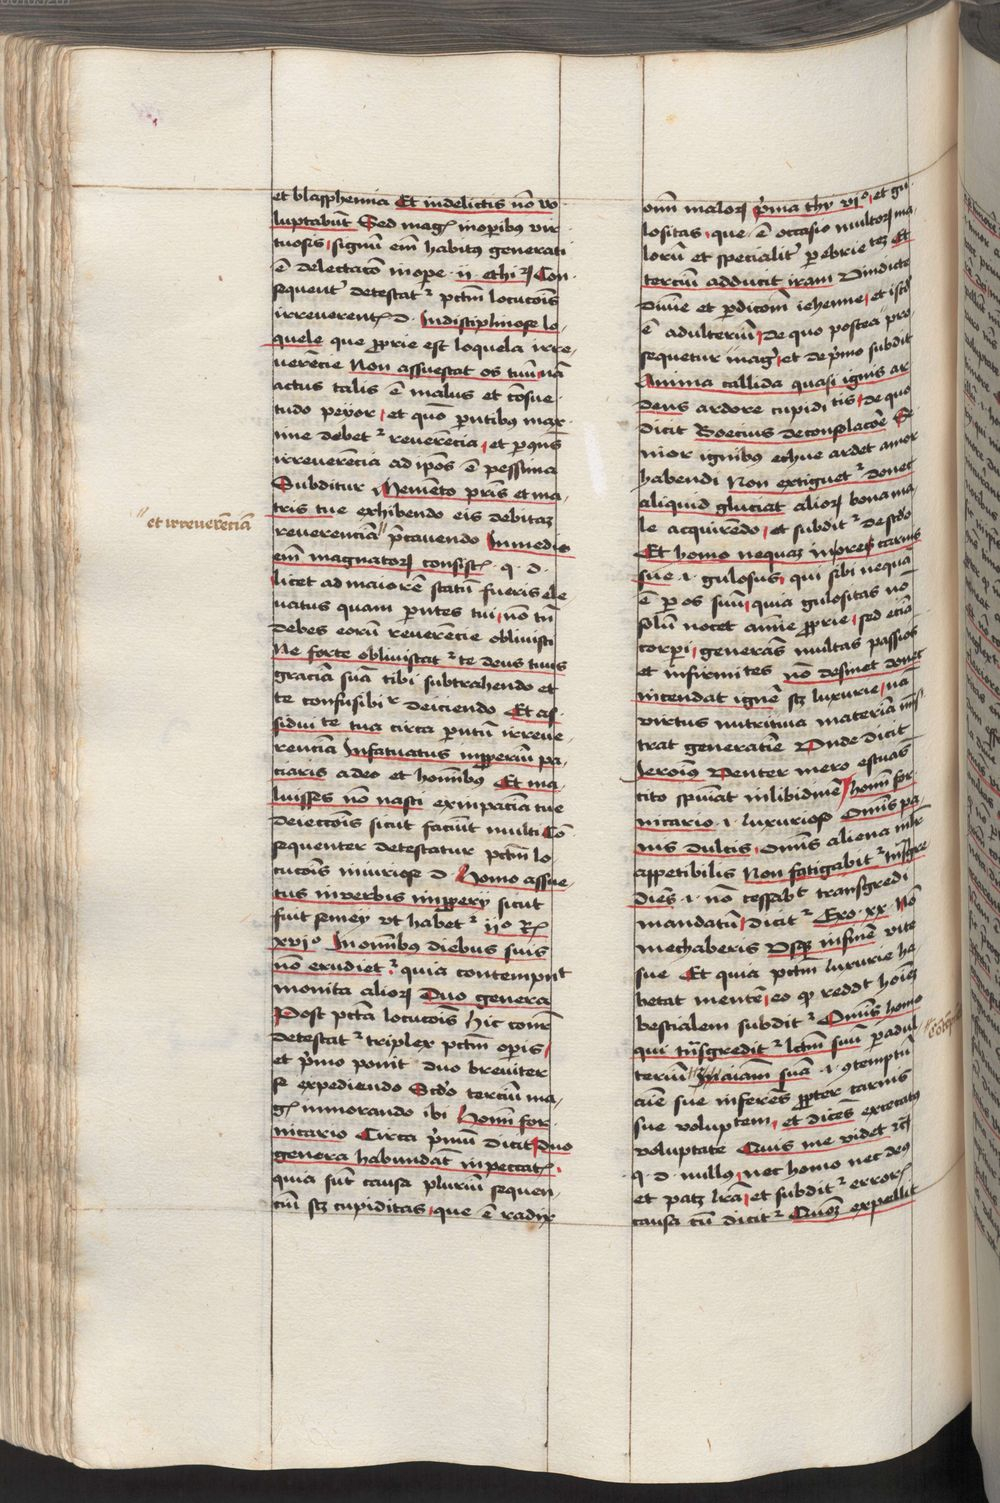 et blasphemia Et indelictis nō vo
luptabūt Sed magꝭ inoꝑibus vir
tuosis signū em̄ habitus generati
ē delectacō in ope .ii. ethicoꝝ Con
sequenter detestatᷣ pctm̄ locucōis
irreuerentꝭ d. Indisciplinose lo
quele que ꝓprie est loquela irre
uerēcie Non assuescat os tuū nā
actus talis ē malus et cōsue
tudo peior et quō pntibus max
ime debetᷣ reuerēcia et ꝑ qn̄s
irreuerēcia ad ip̄os ē pessima
Subditur Memēto pr̄is et ma
tris tue exhibendo eis debitaꝫ
reuerenciā p̄cauendo Inmedio
em̄ magnatoꝝ consistꝭ .q.d.
licet ad maiorē statū fueris ele
uatus quam pntes tui nō tn̄
debes eorū reuerēcie obliuisci
Ne forte obliuiscatᷣ te deus tuus
graciā suā tibi subtrahendo et
te confusibilr deiciendo Et as
sidui te tua circa pntū irreue
renciā Infatuatus improperiū pa
ciaris a deo et hominibus Et ma
luisses nō nasci ex inpaciēcia tue
deieccōis sicut faciūt multi Cō
sequenter detestatur pctm̄ lo
cucōis iniuriose d Homo assue
tus inverbis improperij sicut
fuit semey vt habetᷣ ijº Rꝭ
xvjº In omībus diebus suis
nō erudietᷣ quia contempnit
monita alioꝝ Duo genera
Post pctā locucōis hic cōnr̄
detestatᷣ triplex pctm̄ oꝑis
et p̄mo ponit duo breuiter
se expediendo Scdo terciū ma
gꝭ inmorando ibi Homī for
nicario Circa p̄mū dicit Duo
genera habundāt in peccatꝭ
quia sūt causa pluriū sequen
ciū scꝫ cupiditas que ē radix
et irreuerēciā
oīm maloꝝ prima thy vjº et gu
lositas que ē occasio multoꝝ ma
lorū et specialitᷣ ꝑ ebrietez Et
terciū adducit iram Vindicte
diuīe et ꝑdicōm iehenne et istd
ē adulteriū de quo postea pro
sequetur magꝭ et de p̄mo subdit
Anima callida quasi ignis ar
dens ardore cupiditis de quo
dicit Boecius deconsolacōe Se
uior ignibus ethne ardet amor
habendi Non extiguetᷣ donec
aliquid gluciat alioꝝ bona ma
le acquirēdo et subditᷣ de scdo
Et homo nequaꝫ in ore carnis
sue .i. gulosus qui sibi nequā
ē ꝑ os suū quia gulositas nō
solū nocet anīe ꝓprie sed eciā
corpi generans multas passiōs
et infirmites nō desinet donec
incendat ignē scꝫ luxurie nā
virtus nutritiua materiā mīs
trat generatīe Vnde dicit
Jeronīs Venter mero estuās
cito spumat inlibidinē Homī for
nicario .i. luxurioso Omīs pa
nis dulcis Omīs aliena mlr̄
appetibilis Non fatigabitᷣ tn̄sgre
diēs .i. nō cessabt transgredi
mandatū dicitᷣ Exo .xx. Nō
mechaberis Vsꝫ in finē vite
sue Et quia pctm̄ luxurie ha
betat mentē eo qꝫ reddt hoīeꝫ
bestialem subditᷣ Omīs homo
qui tn̄sgreditᷣ lctm̄ suū ꝑ adul
teriū In aiam suā .i. ꝯtemptū
aīe sue inferēs ꝓpter carnis
sue voluptem et dicēs excecatꝰ
voluptate Quis me videt
.q.d. nullus nec homo nec deus
et subditᷣ erroris
causa cū dicitᷣ Quoꝫ expellit